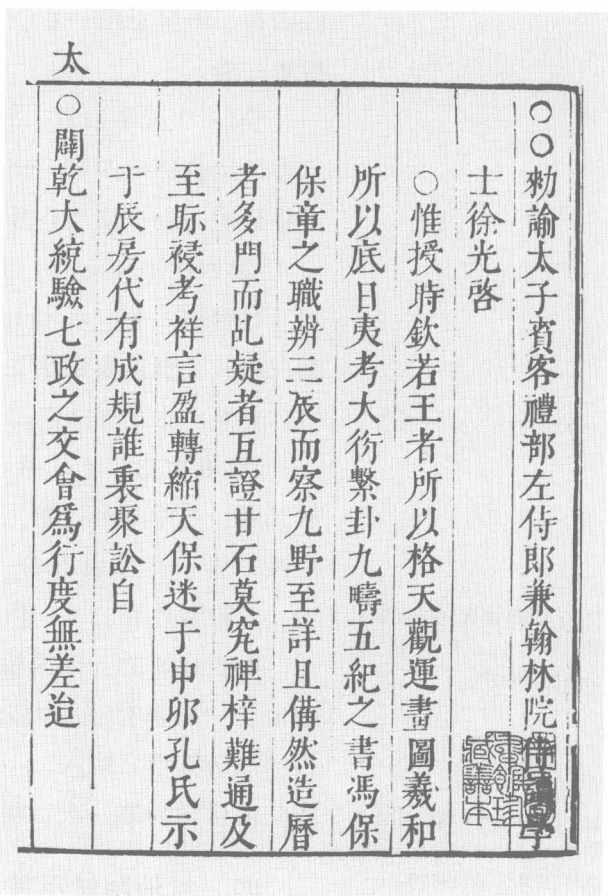 ○○勑諭太子賓客禮部左侍郎兼翰林院侍讀學
士徐光啓
○惟授時欽若王者所以格天觀運畫圖羲和
所以底日夷考大衍繫卦九疇五紀之書馮保
保章之職辨三辰而察九野至詳且備然造曆
者多門而乩疑者互證甘石莫究禆梓難通及
至眎祲考祥言盈轉縮天保迷于申卯孔氏示
于辰房代有成規誰衷聚訟自
太
○闢乾大統驗七政之交會爲行度無差迨